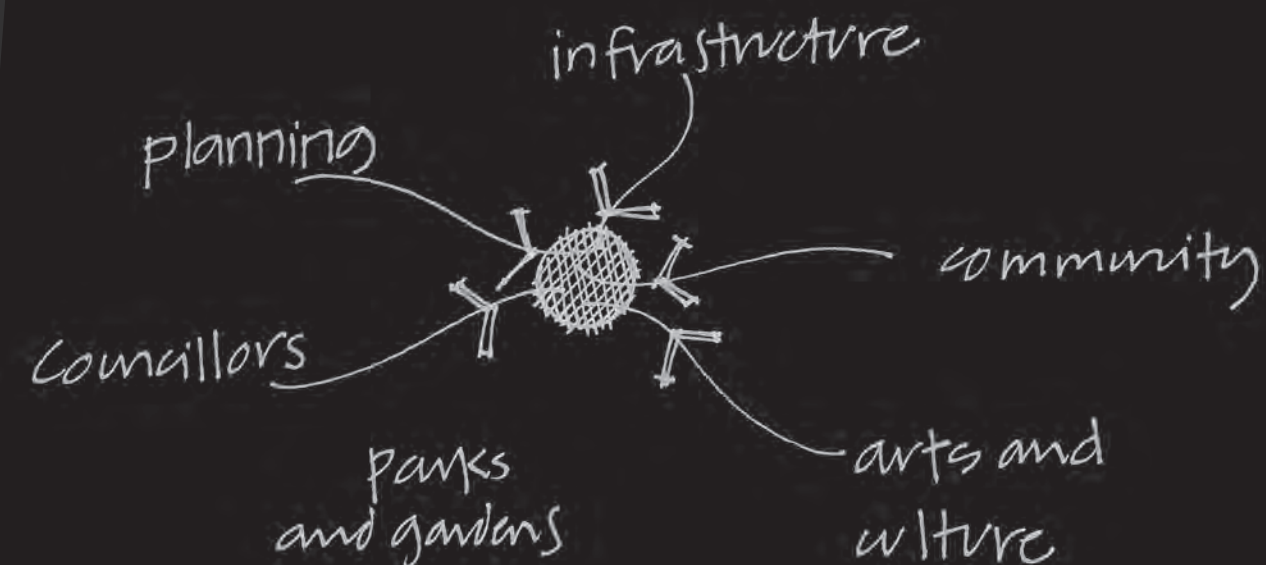 infrastructure
planning
community
Councillors
parks
and gardens
arts and
culture